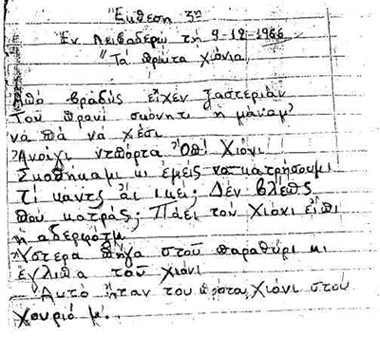 Έκθεση 3η
Εν Λειβαδερώ τη 9-12-1966
"Τα πρώτα χιόνια
Από βραδύς είχεν ξαστεριάν
Του πρανί σκόνητι η μάναμ'
να πά να χέσι
Ανοίγι ντπόρτα Όπ! Χιόνι
Σκοθήκαμι κι εμείς να κατρήσουμι
Τί καντς αι ικεί; Δέν βλέπς
που κατράς; Πάει του χιόνι είπι
η αδερφότμ
Ύστερα πήγα στού παραθύρι κι
έγλιπα τού χιόνι
Αυτό ήταν του πρώτου χιόνι στού
χουριό μ'.